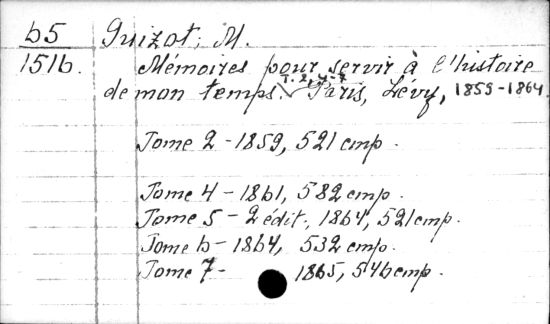 b5 Guizot, M.
151b. Mémoires pour servir à l'histoire
de mon temps. T. 2, 4-7 Paris, Lévy, 1859-1864.
Tome 2 - 1859, 521 cmp.
Tome 4 - 1861, 582 cmp.
Tome 5 - 2 édit., 1864, 521 cmp.
Tome 6 - 1864, 532 cmp.
Tome 7 - 1865, 546 cmp.